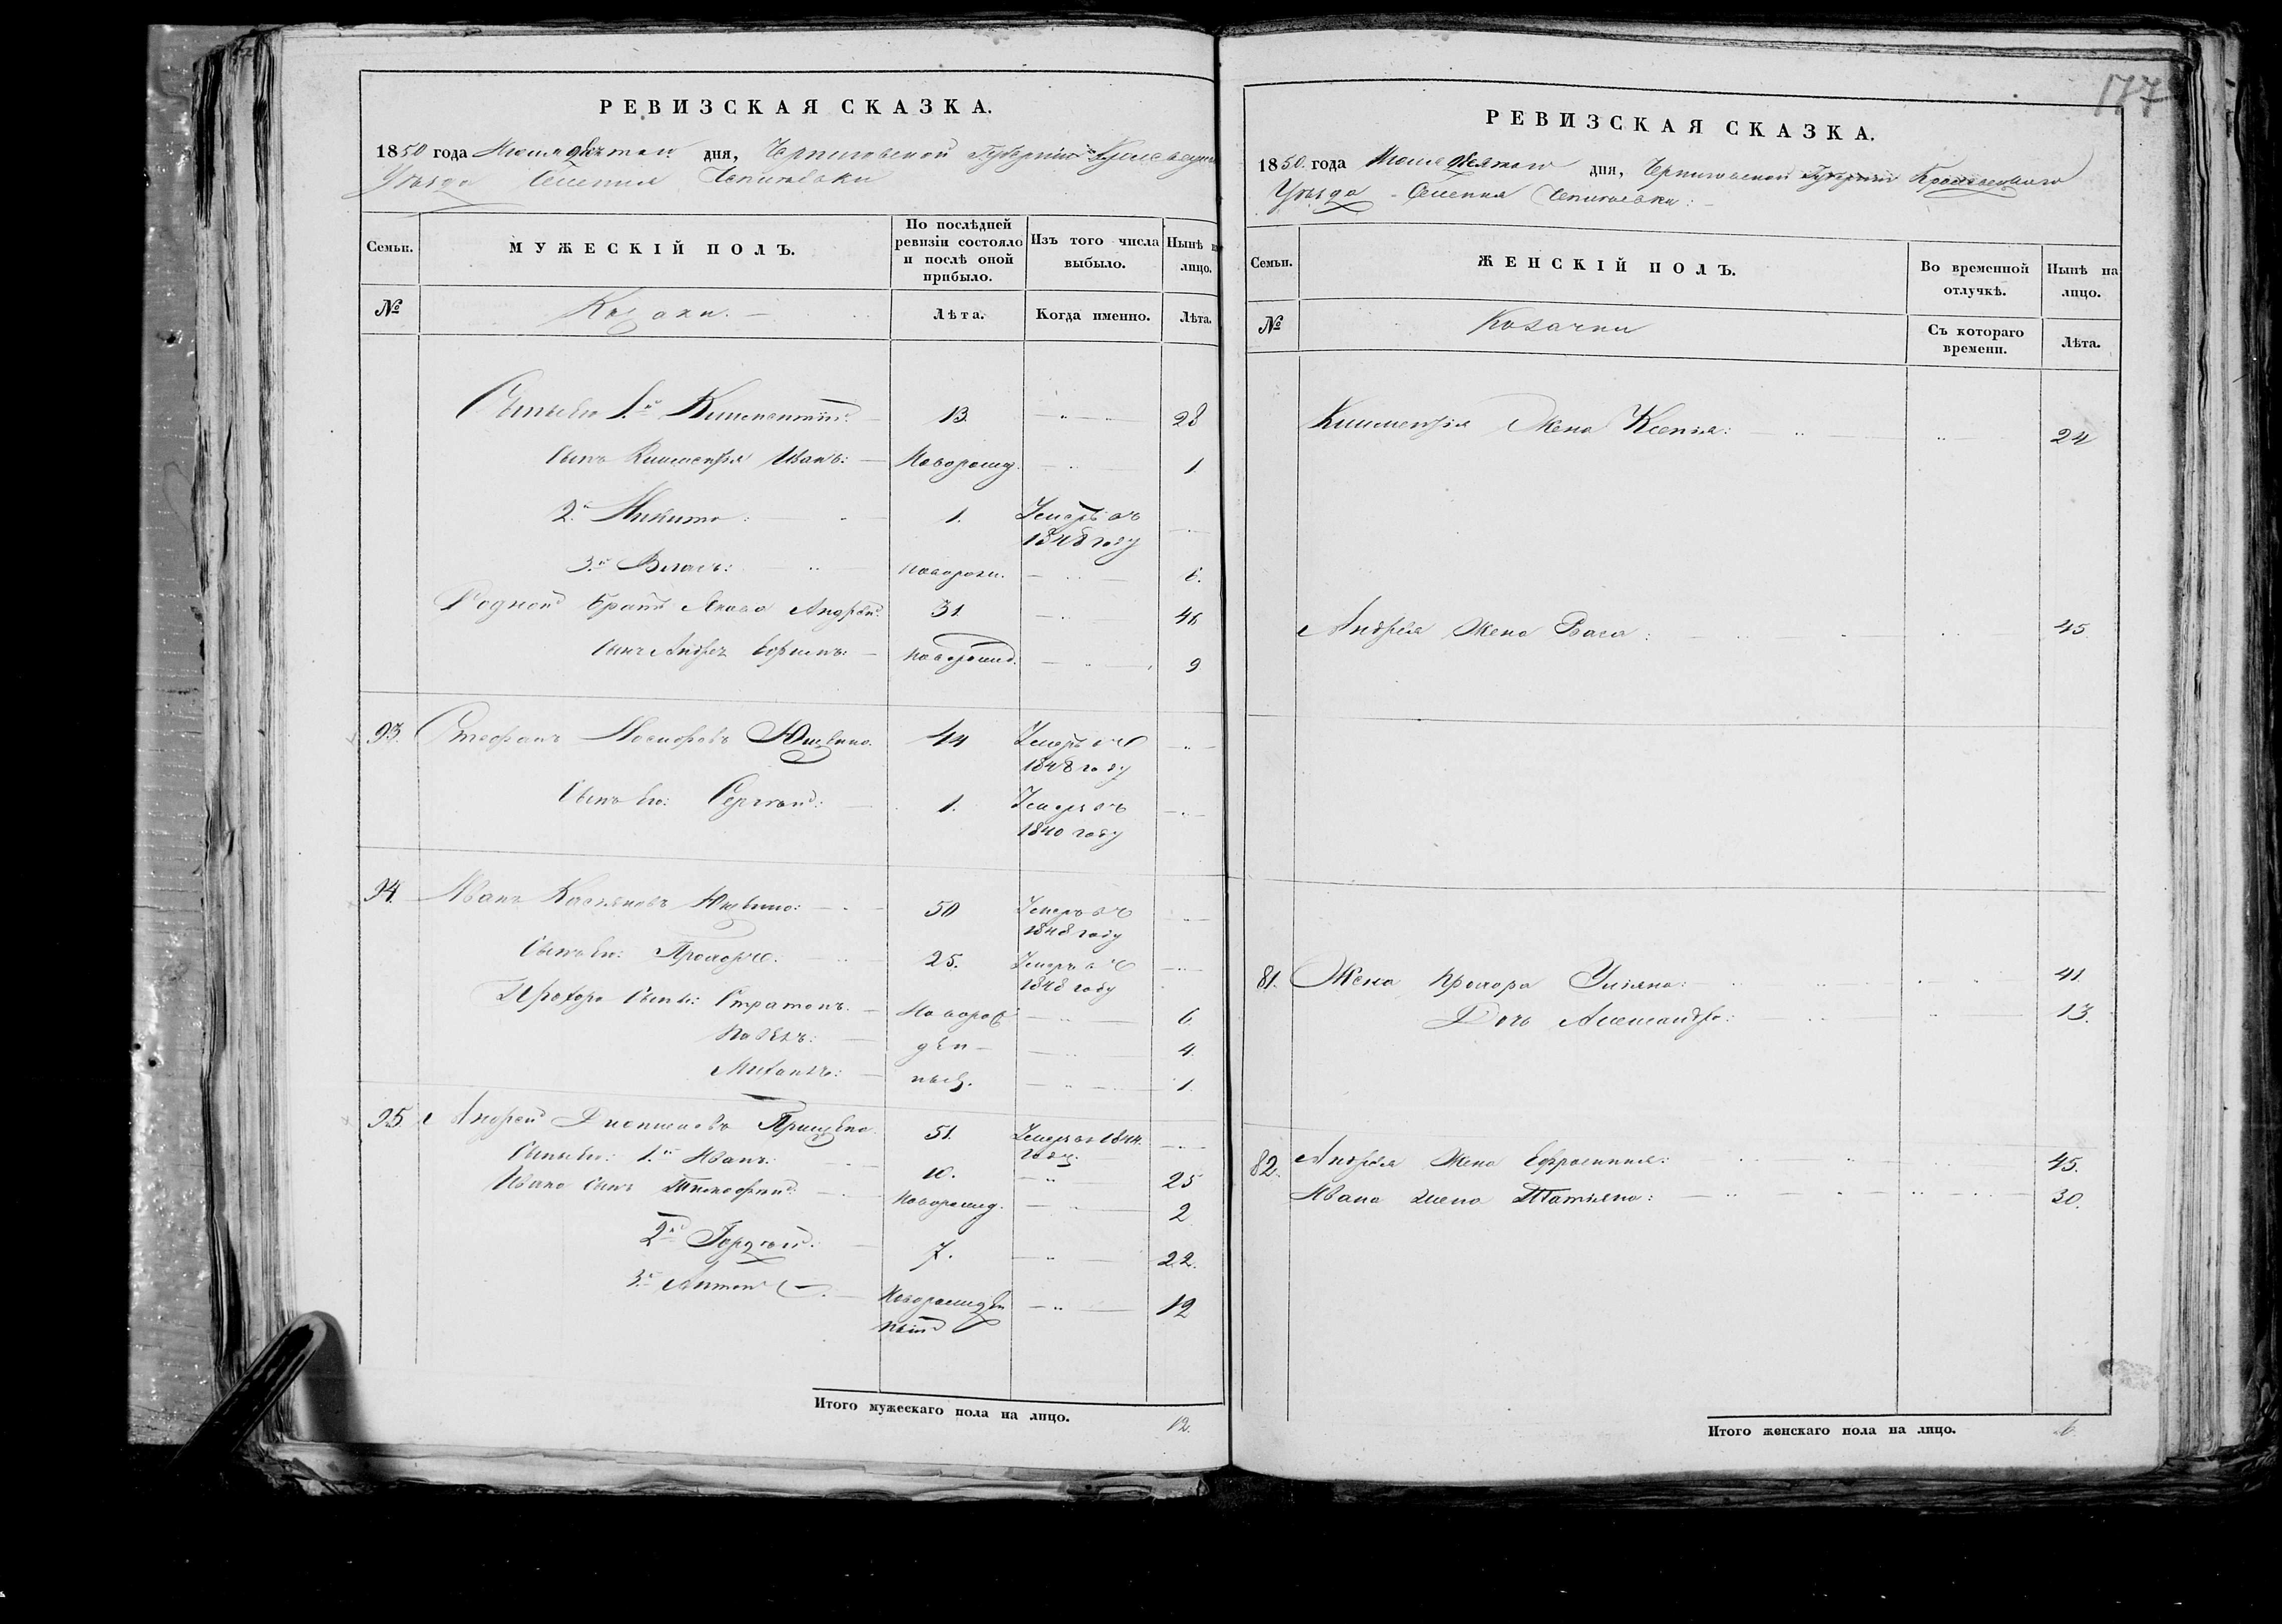 РЕВИЗСКАЯ СКАЗКА.
1850 года дня, Черниговской Губерніи
Уѣзда Селенія
Семьи.
МУЖЕСКІЙ ПОЛЪ.
По послѣдней ревизіи состояло и послѣ оной прибыло.
Изъ того числа выбыло.
Нынѣ на лицо.
№
Козаки.
Лѣта.
Когда именно.
Лѣта.
Сыновья 1й Климентій 13 28
Сынъ Климентія Иванъ: Соворожд. 1
2й Никита: 1. Умеръ въ 1848 году
3й Власъ: новорожд. 6.
Родной братъ Якова Андрей 31 46
Сынъ Андрея Ефимъ: новорожд. 9
93. Стефанъ 44 Умеръ въ 1848 году
Сынъ его: Сергѣй: 1. Умеръ въ 1840 году
94. Иванъ Касьяновъ 50 Умеръ въ 1848 году
Сынъ его: Прохоръ: 25. Умеръ въ 1848 году
Прохора Сынъ: Стратонъ. Новорож 6
Павелъ: ден 4.
Михаилъ: ный. 1.
95. Андрей 51. Умеръ въ 1844 году
Сыновья: 1й Иванъ: 10. 25
Ивана Сынъ Тимофей: Новорожд. 2
2й Гордѣй: 7. 22.
3й Антонъ Новорожденный 12
Итого мужескаго пола на лицо. 12.
177
РЕВИЗСКАЯ СКАЗКА.
1850. года дня, Черниговской Губерніи
Уѣзда Селенія
Семьи.
ЖЕНСКІЙ ПОЛЪ.
Во временной отлучкѣ.
Нынѣ на лицо.
№
Козачки
Съ котораго времени.
Лѣта.
Климентія Жена Ксенія: 24
Андрея Жена 45
81. Жена Прохора Уліяна: 41
Дочь Александра: 13.
82. Андрея Жена Ефросинія: 45.
Ивана жена Татіяна: 30.
Итого женскаго пола на лицо. 6